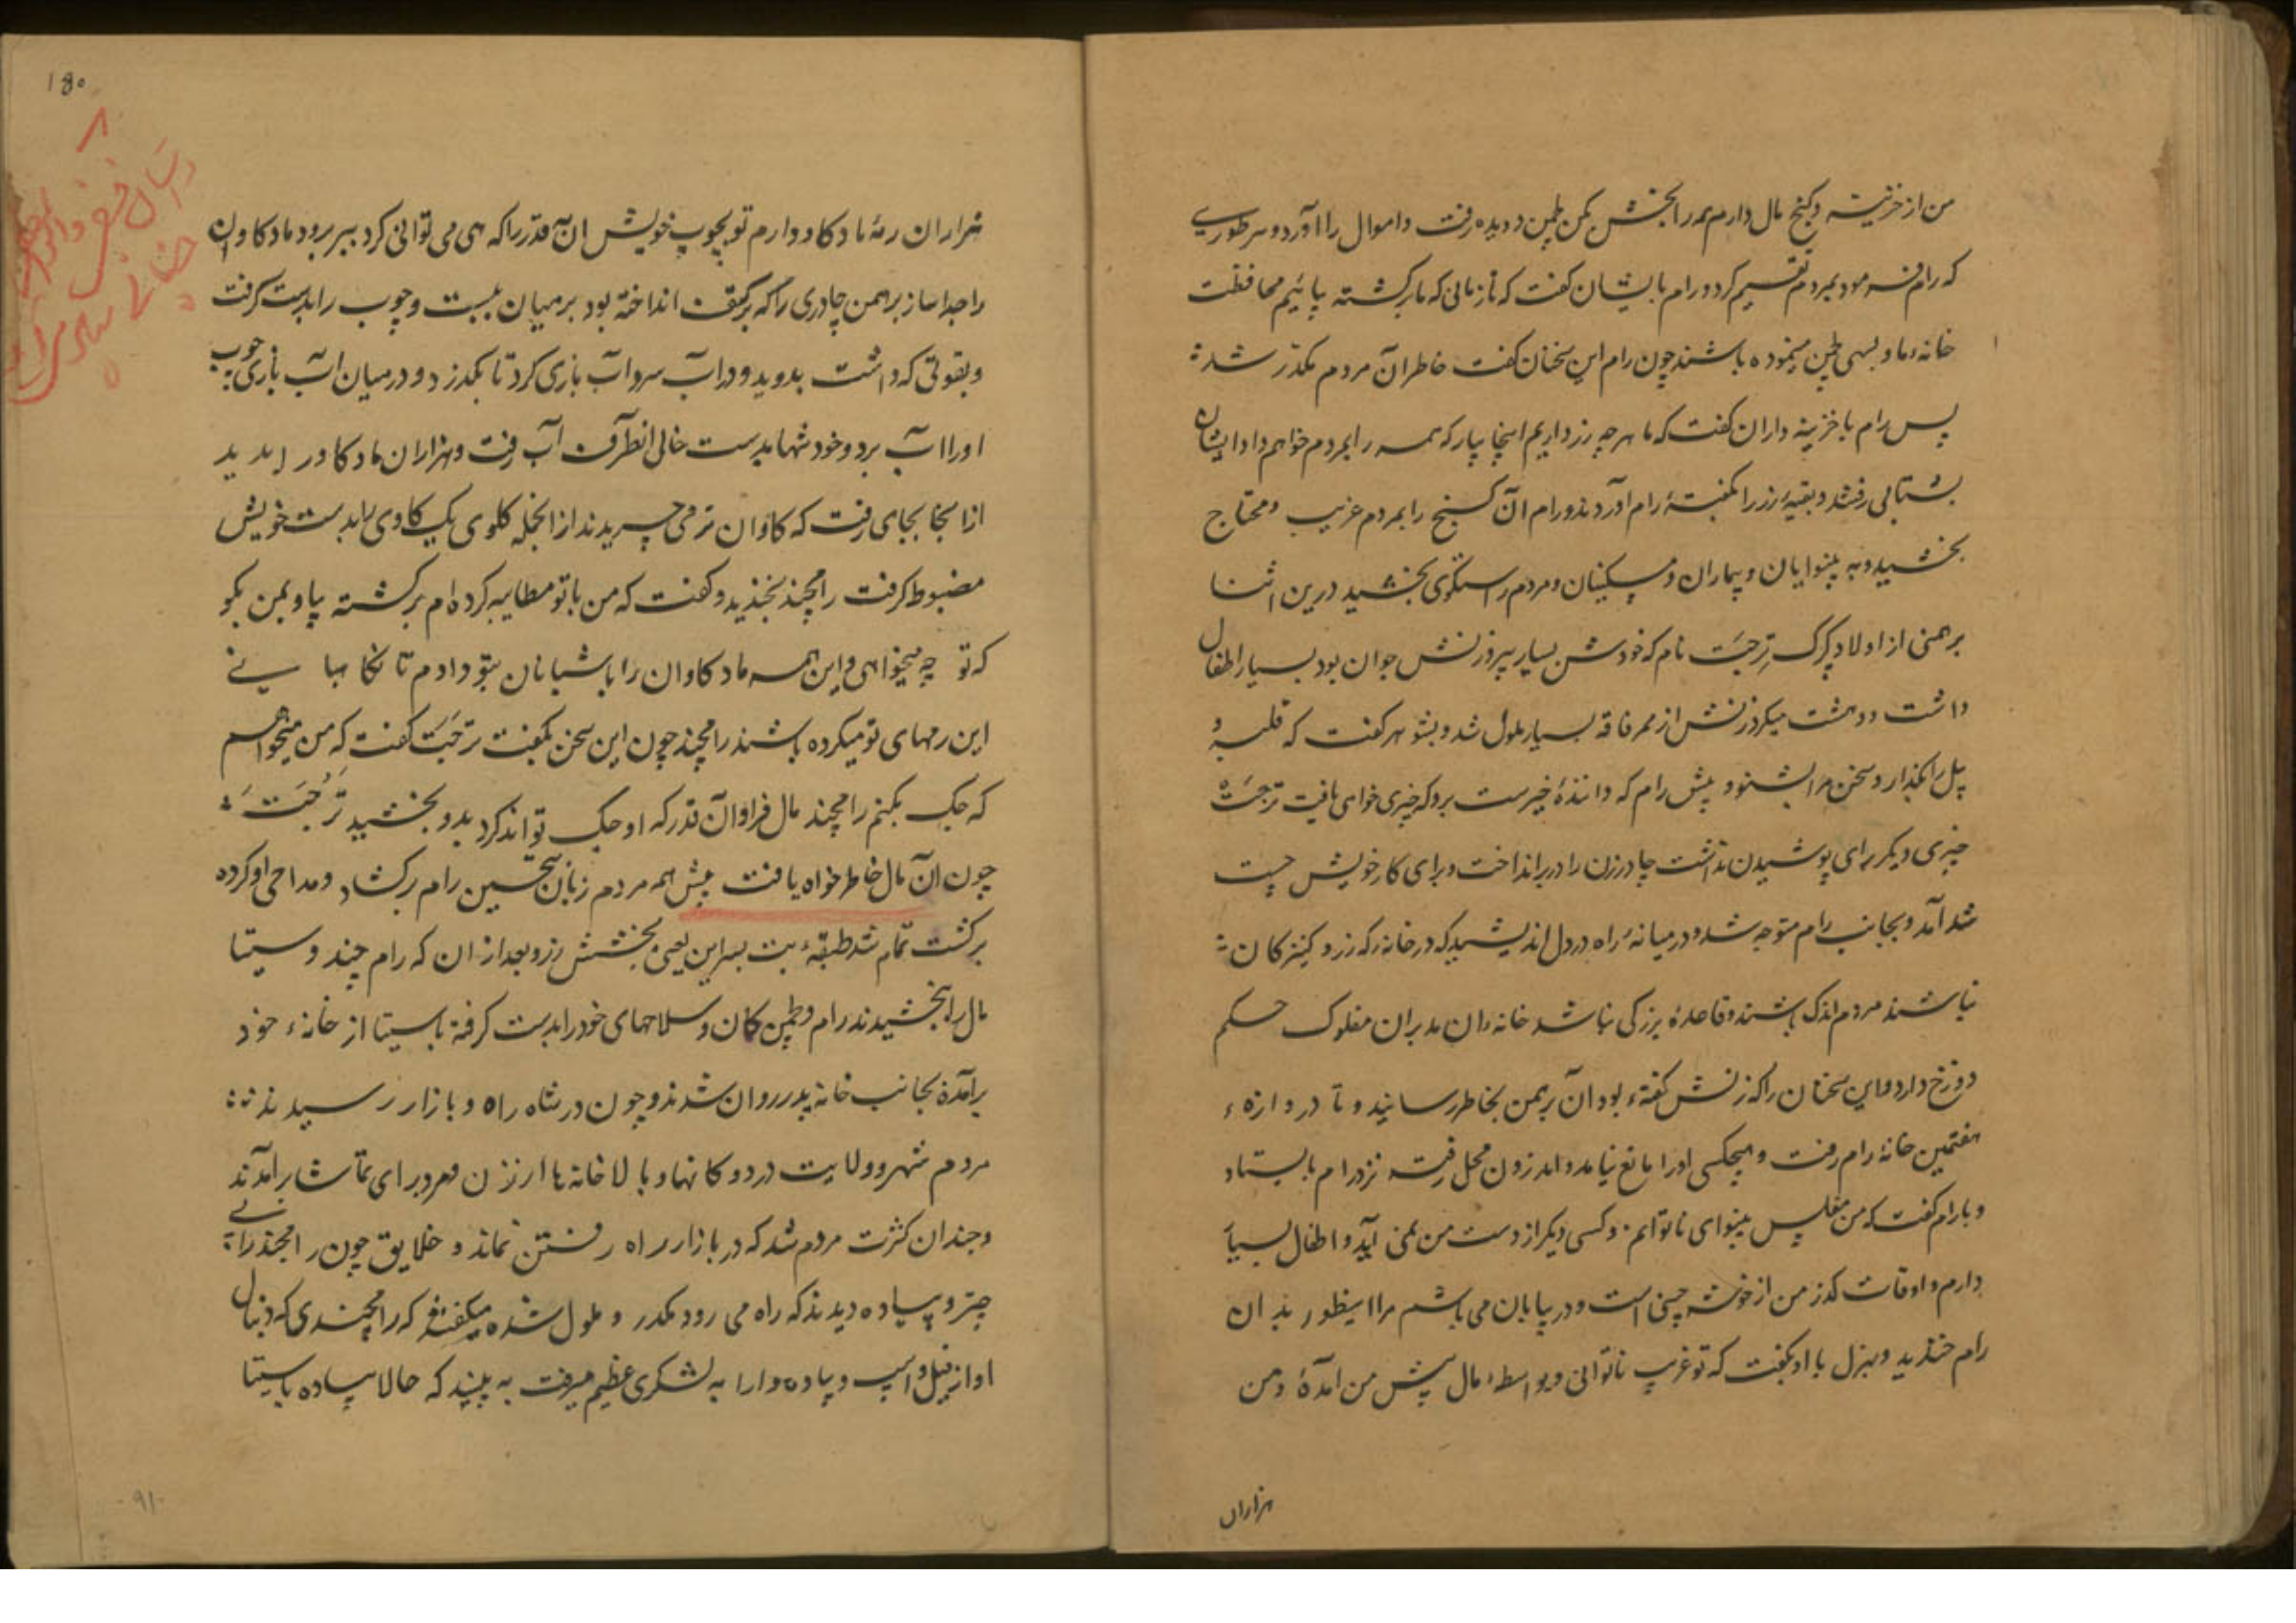 من از خزینه و گنج مال دارم همه را بخشش کن لچمن دویده رفت و اموال را آورد و بهر طوری
که رام فرموده بمردم تقسیم کرد و رام بایشان گفت که تا زمانی که ما برگشته بیائیم محافظت
خانهء ما و لچمن مینموده باشند چون رام این سخنان گفت خاطر آن مردم مکدر شد
پس رام با خزینه داران گفت که ما هر چه زر داریم اینجا بیار که همه را بمردم خواهم داد ایشان
بشتابی رفتند و بقیهٔ زر را بگفتهٔ رام آوردند و رام آن گنج را بمردم غریب و محتاج
بخشید و به بینوایان و بیماران و مسکینان و مردم راستگوی بخشید درین اثنا
برهمنی از اولاد گرگ ترجت نام که خودش بسیار پیر و زنش جوان بود بسیار اطفال
داشت و دهشت میکرد زنش از ممر فاقه بسیار ملول شد و بشوهر گفت که قلبه و
بیل را بگذار و سخن مرا بشنو و پیش رام که دانندهٔ خیرست برو که چیزی خواهی یافت ترجت
چیزی دیگر برای پوشیدن نداشت چادر زن را در بر انداخت و برای کار خویش چست
شد آمد و بجانب رام متوجه شد و در میانهٔ راه در دل اندیشید که در خانه که زر و کنیزکان
نباشند مردم اندک باشند و قاعدهٔ بزرگی نباشد خانه دان مدبران مفلوک حکم
دوزخ دارد و این سخنان را که زنش گفته بود آن برهمن بخاطر رسانید و تا دروازهء
هفتمین خانهٔ رام رفت و هیچکسی او را مانع نیامد و اندرون محل رفته نزد رام بایستاد
و با رام گفت که من مفلس بینوای ناتوانم و کسی دیگر از دست من نمی آید و اطفال بسیار
دارم و اوقات گذر من از خوشه چینی است و در بیابان می باشم مرا اینطور بدان
رام خندید و بهزل با او بگفت که تو غریب ناتوانی و بواسطهء مال پیش من آمدهٔ و من
هزاران
۱۵۰
هزاران رمهٔ مادگاو دارم تو بچوب خویش آن قدر را که هی می توانی کرد ببر برو مادگاوان
را جدا ساز برهمن چادری را که بر کتف انداخته بود بر میان ببست و چوب را بدست گرفت
و بقوتی که داشت بدوید و در آب سرد آب بازی کرد تا بگذرد و در میان آب بازی چوب
او را آب برد و خود تنها بدست خالی انطرف آب رفت و هزاران مادگاو را بدید
از آنجا بجای رفت که گاوان نر می چریدند از انجمله گلوی یک گاوی را بدست خویش
مضبوط گرفت رامچند بخندید و گفت که من با تو مطایبه کرده ام برگشته بیا و بمن بگو
که تو چه میخواهی و این همه مادگاوان را با شبانان بتو دادم تا نگاهبانی
این رمهای تو میکرده باشند رامچند چون این سخن بگفت ترجت گفت که من میخواهم
که جگ بکنم رامچند مال فراوان قدر که او جگ تواند کرد بدو بخشید ترجت
چون آن مال خاطر خواه یافت پیش همه مردم زبان تحسین رام برگشاد و مداحی او کرده
برگشت تمام شد طبقهء بت بسراین یعنی بخشش زر و بعد از ان که رام چند و سیتا
مال را بخشیدند رام و لچمن کمان و سلاحهای خود را بدست گرفته با سیتا از خانهء خود
برآمده بجانب خانه پدر روان شدند و چون در شاه راه و بازار رسیدند
مردم شهر و ولایت در دوکانها و بالا خانه ها از زن و مرد برای تماشا برآمدند
و چندان کثرت مردم شد که در بازار راه رفتن نماند و خلایق چون رامچند را بی
چتر و پیاده دیدند که راه می رود مکدر و ملول شده میگفتند که رامچندی که دنبال
او از فیل و اسپ و پیاده و ارابه لشکری عظیم میرفت به بینید که حالا پیاده با سیتا
۹۱